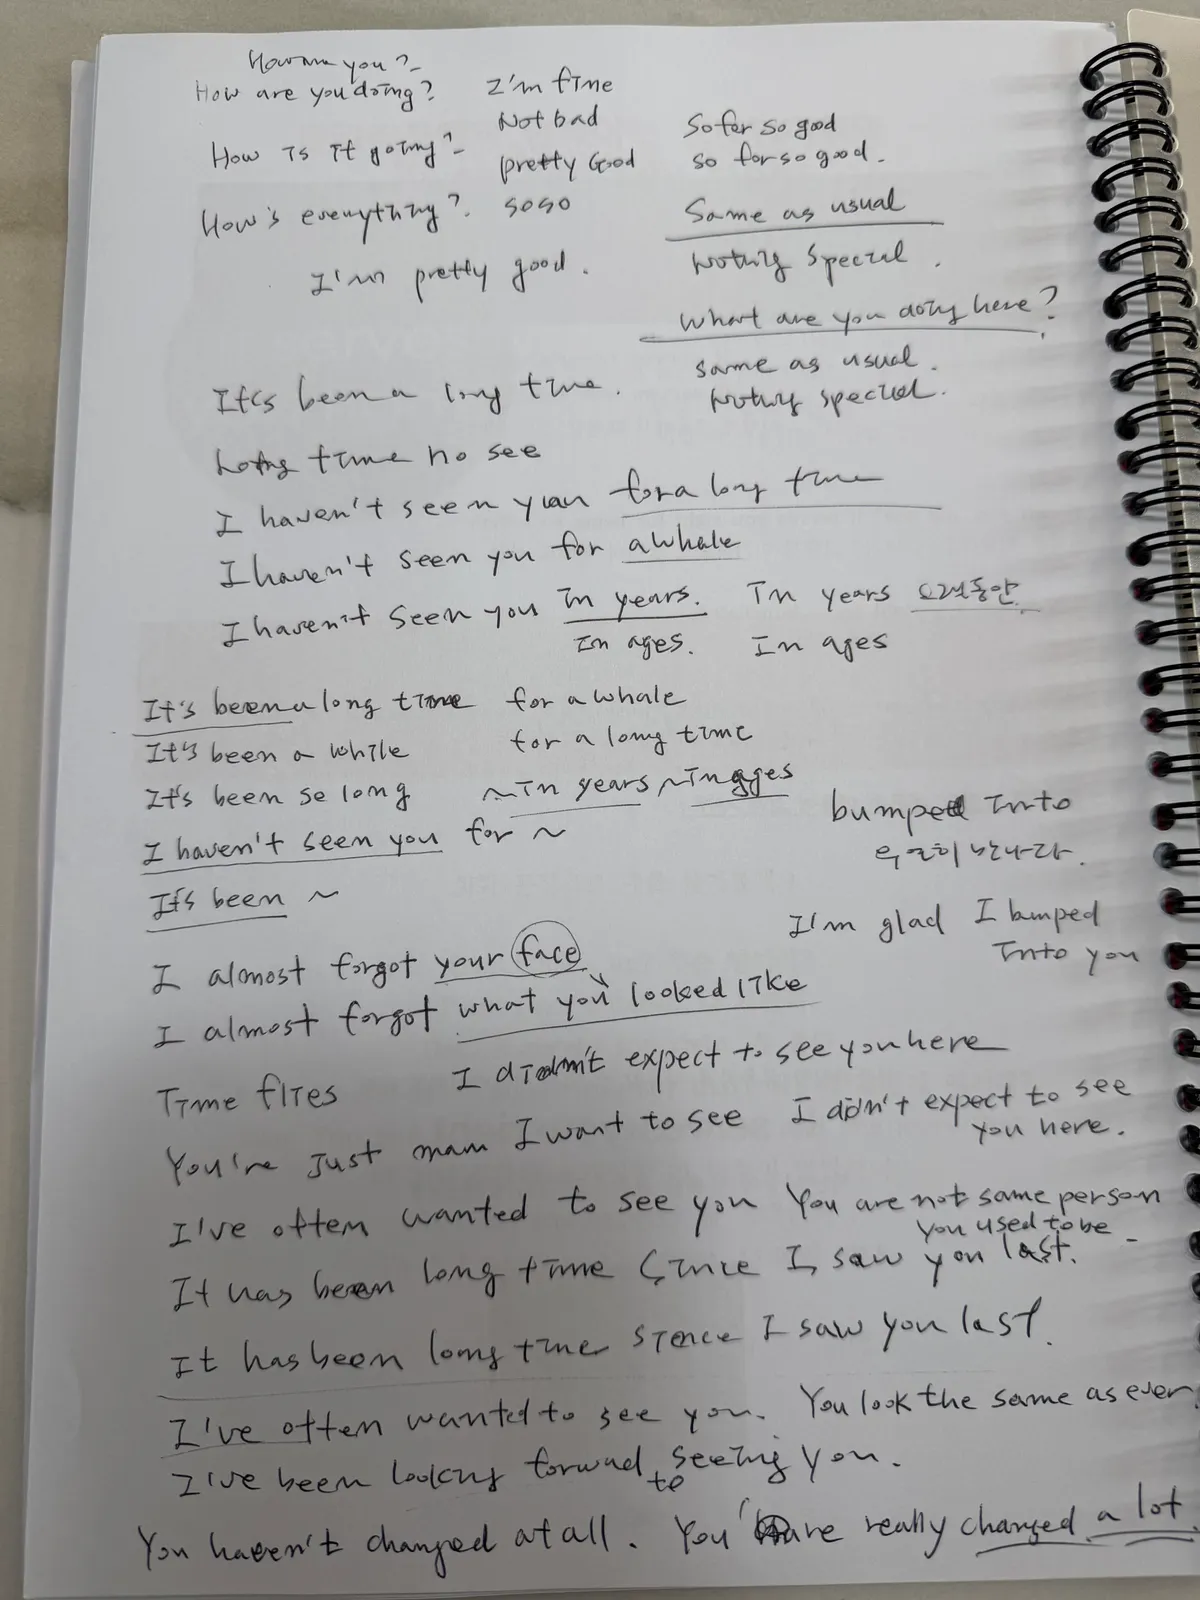 How are you?
How are you doing? I'm fine
Not bad
How is it going? pretty Good
So far so good
so far so good.
How's everything? soso
Same as usual
I'm pretty good.
Nothing special.
What are you doing here?
same as usual.
Nothing special.
It's been a long time.
Long time no see
I haven't seen you for a long time
I haven't seen you for awhale
I haven't seen you In years. In years 오랫동안
In ages. In ages
It's been a long time for a whale
It's been a while for a long time
It's been so long ~In years ~In ages
I haven't seen you for ~
bumped Into
우연히 만나다.
It's been ~
I'm glad I bumped
Into you
I almost forgot your face
I almost forgot what you looked like
Time flies I didn't expect to see you here
You're just mam I want to see I didn't expect to see
you here.
I've often wanted to see you You are not same person
you used to be
It has been long time Since I saw you last.
It has been long time sience I saw you last.
I've often wanted to see you. You look the same as ever
I've been looking forward to seeing you.
You haven't changed at all. You have really changed a lot.